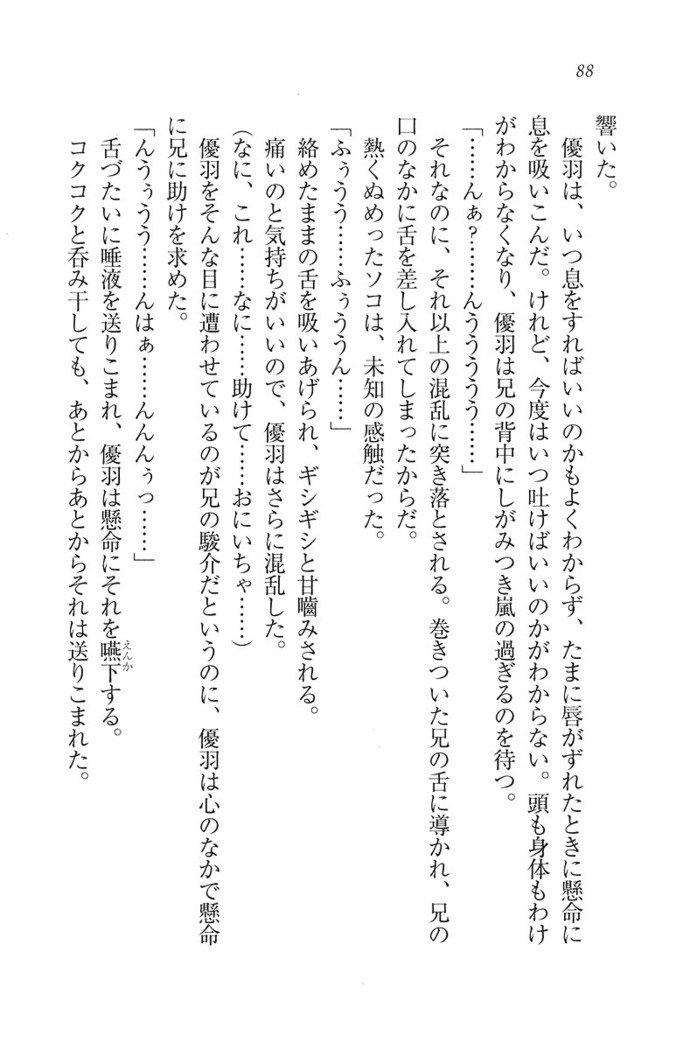 88
響いた。
優羽は、いつ息をすればいいのかもよくわからず、たまに唇がずれたときに懸命に
息を吸いこんだ。けれど、今度はいつ吐けばいいのかがわからない。頭も身体もわけ
がわからなくなり、優羽は兄の背中にしがみつき嵐の過ぎるのを待つ。
「……んぁ?……んうううう……」
それなのに、それ以上の混乱に突き落とされる。巻きついた兄の舌に導かれ、兄の
口のなかに舌を差し入れてしまったからだ。
熱くぬめったソコは、未知の感触だった。
「ふぅうう……ふぅううん……」
絡めたままの舌を吸いあげられ、ギシギシと甘嚙みされる。
痛いのと気持ちがいいので、優羽はさらに混乱した。
(なに、これ……なに……助けて……おにいちゃ……)
優羽をそんな目に遭わせているのが兄の駿介だというのに、優羽は心のなかで懸命
に兄に助けを求めた。
「んうぅうう……んはぁ……んんんぅっ……」
舌づたいに唾液を送りこまれ、優羽は懸命にそれを嚥下えんかする。
コクコクと呑み干しても、あとからあとからそれは送りこまれた。